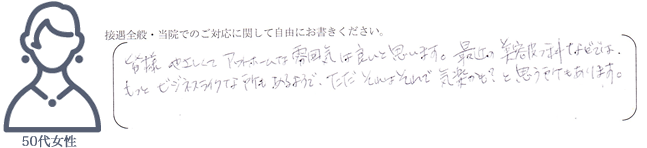 接遇全般・当院でのご対応に関して自由にお書きください。
皆様 やさしくて アットホームな 雰囲気は良いと思います。最近の 美容皮フ科などでは、
もっと ビジネスライクな所もあるようで、ただ それはそれで 気楽かも？と 思う所もあります。
50代女性